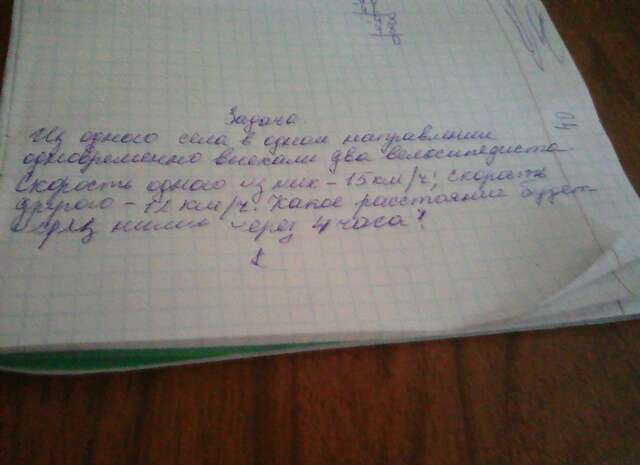 Задача.
Из одного села в одном направлении
одновременно выехали два велосипедиста.
Скорость одного из них - 15 км/ч, скорость
другого - 12 км/ч. Какое расстояние будет
ними через 4 часа?